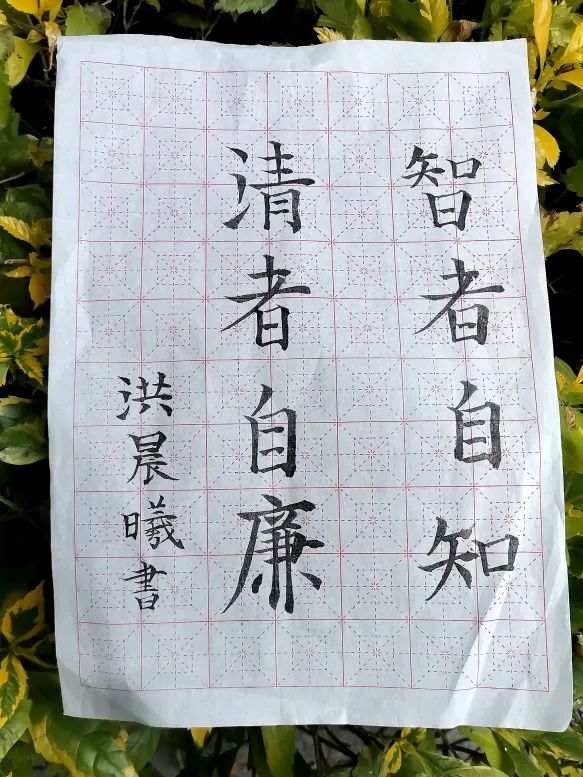 智者自知
清者自廉
洪晨曦書